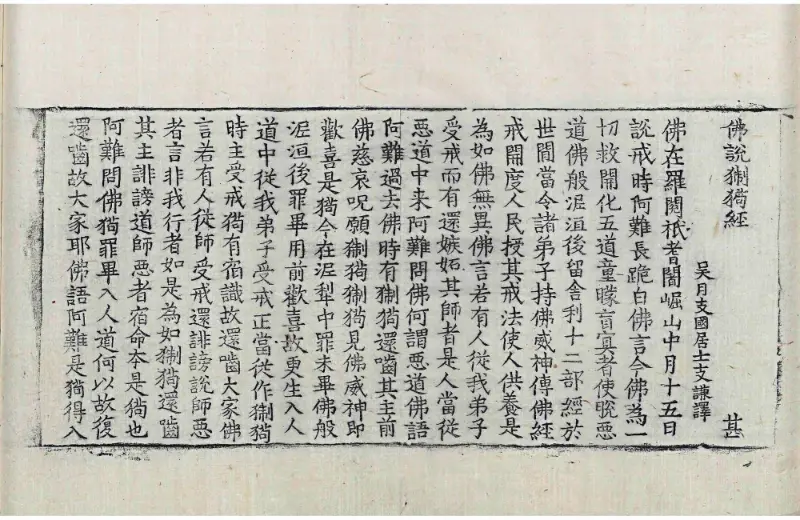 佛說猘狗經 甚
吳月支國居士支謙譯
佛在羅閱祇耆闍崛山中月十五日
說戒時阿難長跪白佛言今佛為一
切救開化五道童矇盲冥者使脫惡
道佛般泥洹後留舍利十二部經於
世間當令諸弟子持佛威神傳佛經
戒開度人民授其戒法使人供養是
為如佛無異佛言若有人從我弟子
受戒而有還嫉妬其師者是人當從
惡道中来阿難問佛何謂惡道佛語
阿難過去佛時有猘狗還嚙其主前
佛慈哀呪願猘狗猘狗見佛威神即
歡喜是狗今在泥犁中罪未畢佛般
泥洹後罪畢用前歡喜故更生入人
道中從我弟子受戒正當從作猘狗
時主受戒狗有宿識故還嚙大家佛
言若有人從師受戒還誹謗說師惡
者言非我行者如是為如猘狗還嚙
其主誹謗道師惡者宿命本是狗也
阿難問佛狗罪畢入人道何以故復
還嚙故大家耶佛語阿難是狗得入